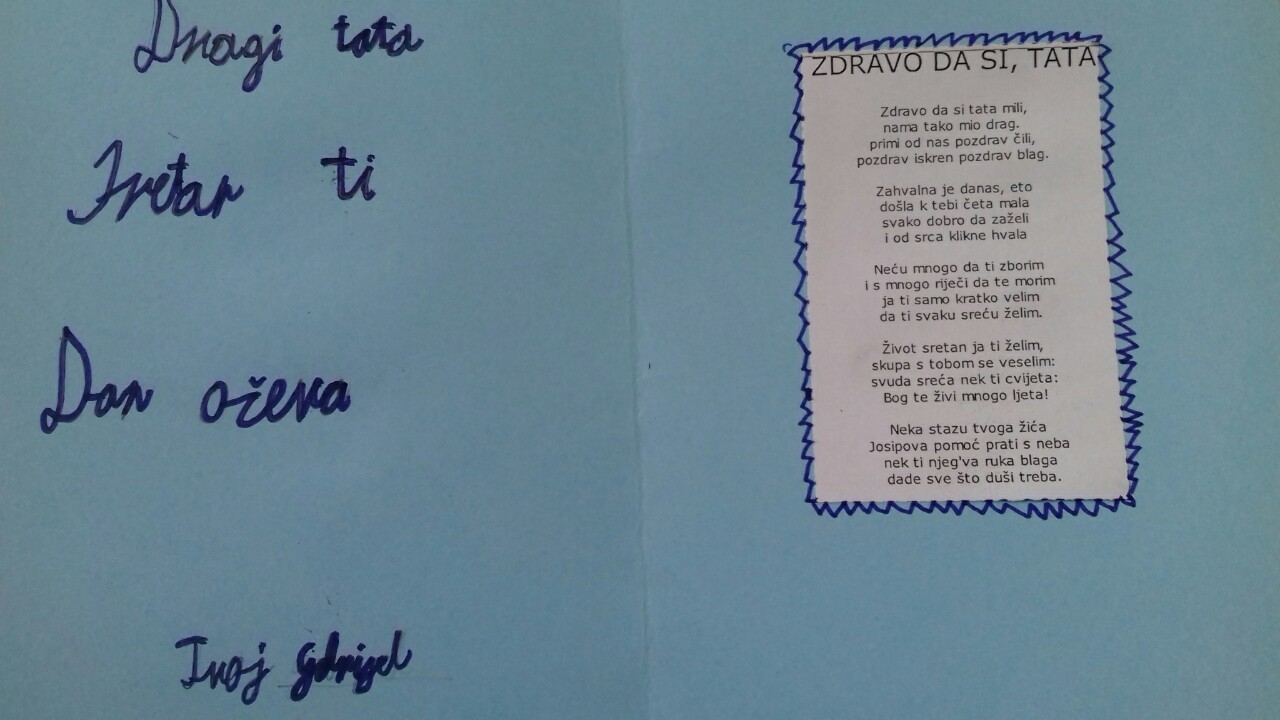 Dragi tata
Sretan ti
Dan očeva
Tvoj Gabrijel
ZDRAVO DA SI, TATA
Zdravo da si tata mili,
nama tako mio drag.
primi od nas pozdrav čili,
pozdrav iskren pozdrav blag.
Zahvalna je danas, eto
došla k tebi četa mala
svako dobro da zaželi
i od srca klikne hvala
Neću mnogo da ti zborim
i s mnogo riječi da te morim
ja ti samo kratko velim
da ti svaku sreću želim.
Život sretan ja ti želim,
skupa s tobom se veselim:
svuda sreća nek ti cvijeta:
Bog te živi mnogo ljeta!
Neka stazu tvoga žića
Josipova pomoć prati s neba
nek ti njeg'va ruka blaga
dade sve što duši treba.